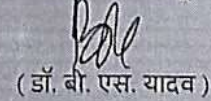 ( डॉ. बी. एस. यादव )